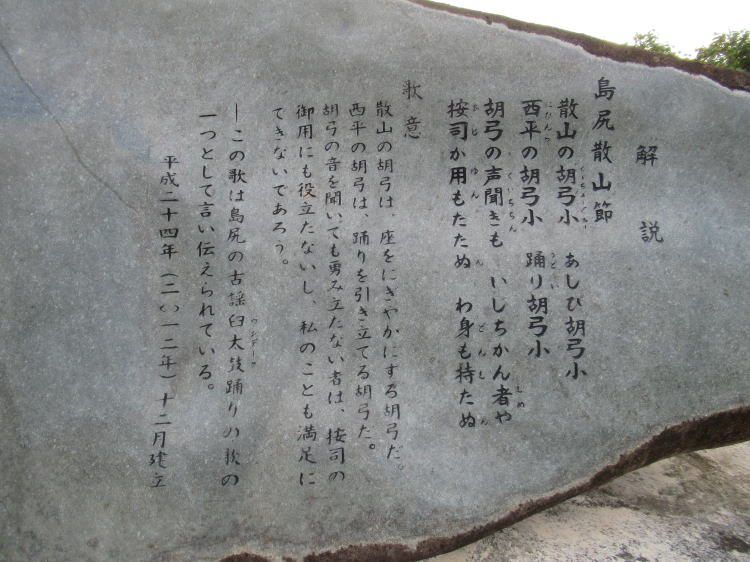 解説
島尻散山節
散山の胡弓小 あしび胡弓小
西平の胡弓小 踊り胡弓小
胡弓の声聞きも いしちかん者や
按司か用もたたぬ わ身も持たぬ
歌意
散山の胡弓は、座をにぎやかにする胡弓だ。
西平の胡弓は、踊りを引き立てる胡弓だ。
胡弓の音を聞いても勇み立たない者は、按司の
御用にも役立たないし、私のことも満足に
できないであろう。
ーこの歌は島尻の古謡臼太鼓踊りの歌の
一つとして言い伝えられている。
平成二十四年(二〇一二年)十二月建立